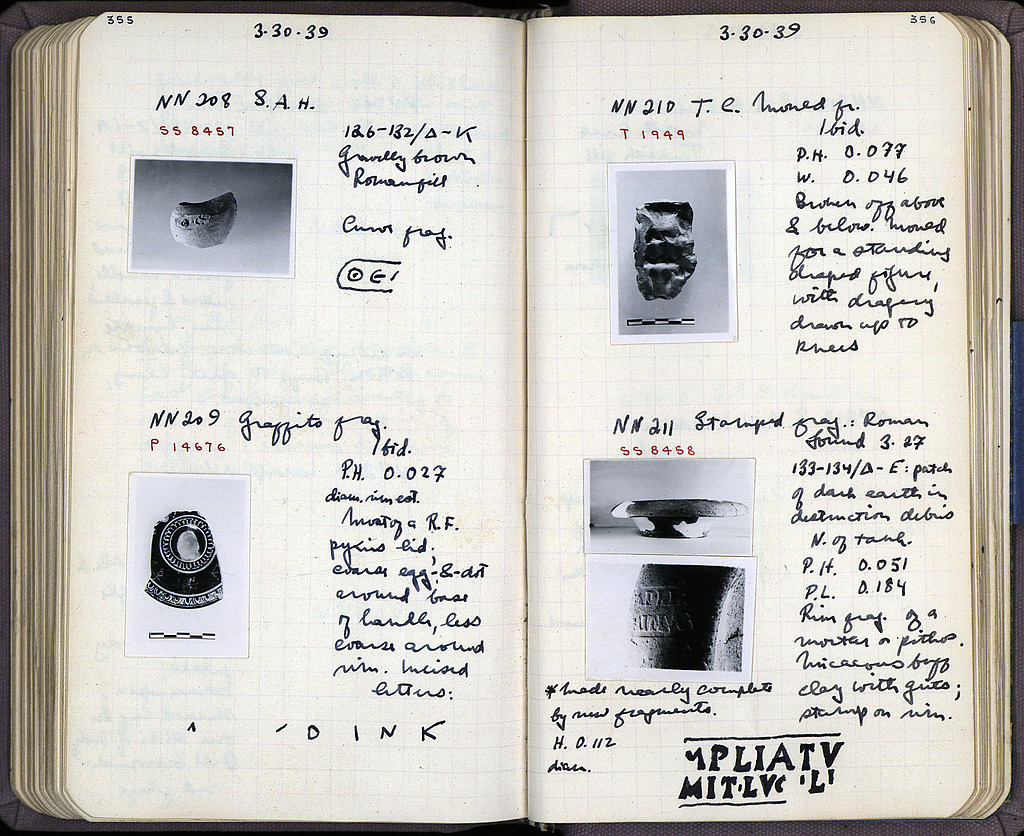 355
3·30·39
NN 208 S.A.H.
SS 8457
136-132/Δ-K
Gravelly brown
Roman fill
Curve frag.
ΘΕΙ
NN 209 Graffito frag.
P 14676
Ibid.
P.H. 0.027
diam. rim est.
Most of a R.F.
pyxis lid;
coarse egg-&-dot
around base
of handle, less
coarse around
rim. Incised
letters:
D I N K
356
3·30·39
NN 210 T.C. Moned fr.
T 1949
Ibid.
P.H. 0.077
W. 0.046
Broken off above
& below. Moned
for a standing
draped figure,
with drapery
drawn up to
knees
NN 211 Stamped frag.: Roman
SS 8458
found 3·27
133-134/Δ-E: patch
of dark earth in
destruction debris
N. of tank.
P.H. 0.051
P.L. 0.184
Rim frag. of a
mortar or pithos.
Micaceous buff
clay with grits;
stamp on rim.
*Made nearly complete
by new fragments.
H. 0.112
diam.
MPLIATV
MIT·LVC 'L'